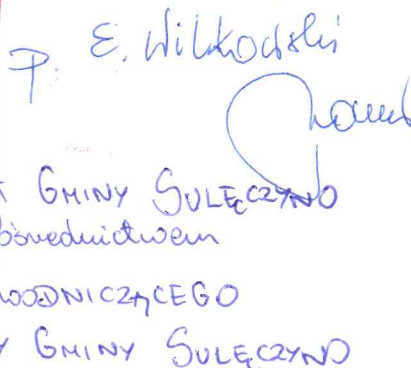 P. E. Wilkowski
GMINY SULĘCZYNO
pośrednictwem
WODNICZĄCEGO
Y GMINY SULĘCZYNO